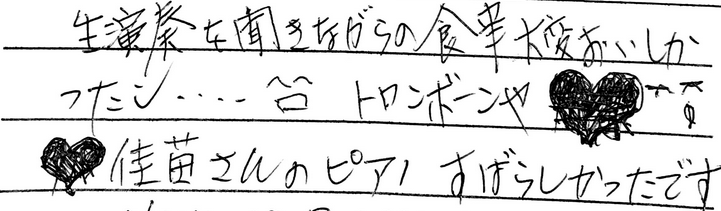 生演奏を聞きながらの食事大変おいしか
ったし････ トロンボーンや
佳苗さんのピアノ すばらしかったです